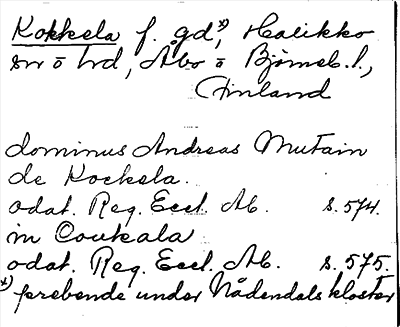 Kokkela f. gd *), Halikko
sn o hd, Åbo o Björneb. l.,
Finland
dominus Andreas Mutain
de Kockela.
odat. Reg. Eccl. Ab. s. 574.
in Coukala
odat. Reg. Eccl. Ab. s. 575.
*) prebende under Nådendals kloster